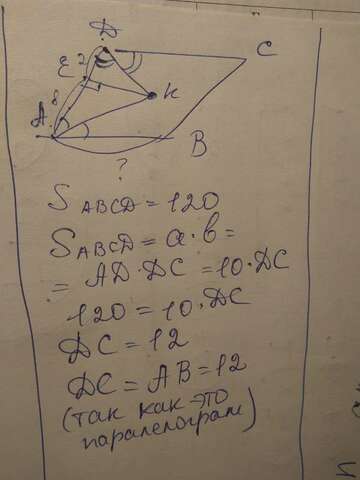 Д
C
E 2
K
A 8
B
?
S ABCД = 120
S ABCД = a · b =
= AД · ДC = 10 · ДC
120 = 10 · ДC
ДC = 12
ДC = AB = 12
(так как это
паралелограм)